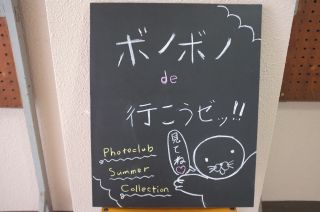 ボノボノ
de
行こうゼッ!!
見てね♡
Photoclub
Summer
Collection